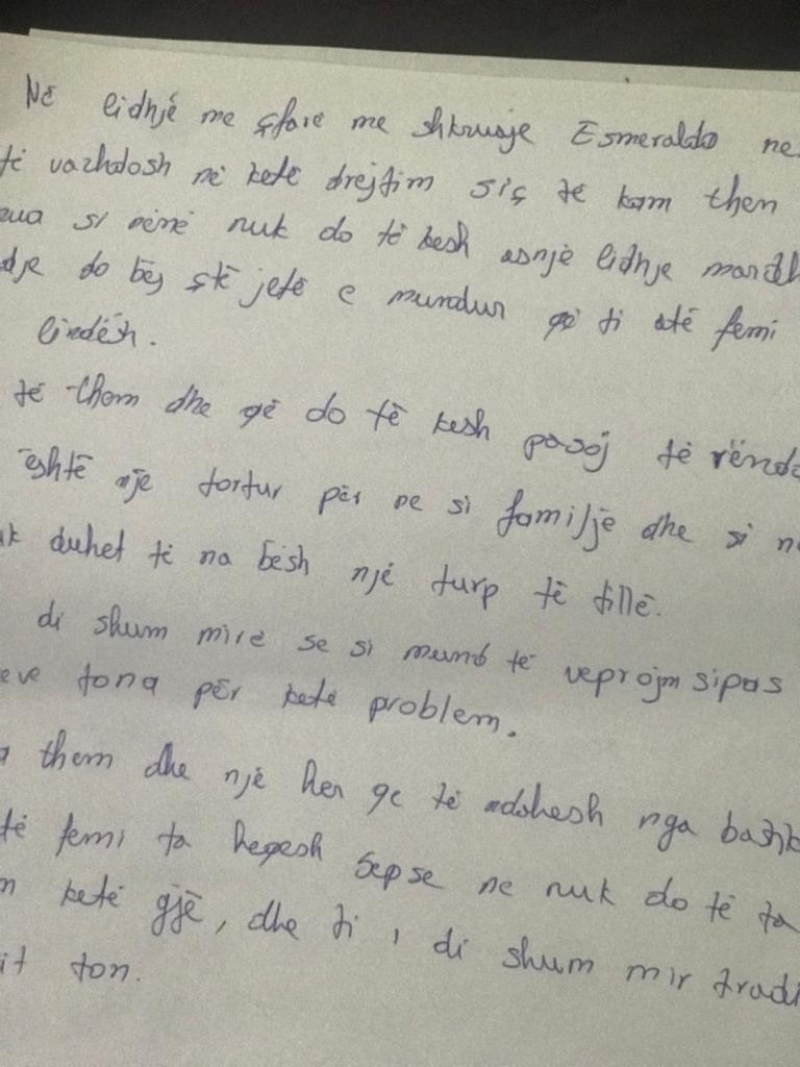 Në lidhjë me çfarë me shkruaje Esmeralda ne
të vazhdosh në ketë drejtim siç të kam them
si nënë nuk do të kesh asnjë lidhje mardh
do bëj çtë jetë e mundur që ti atë femi
lindësh.
të thom dhe që do të kesh pasoj të rënda
është një tortur për ne si familje dhe si n
duhet të na bësh një turp të tillë.
di shum mirë se si mund të veprojm sipas
eve tona për ketë problem.
them dhe një her qe të ndahesh nga bashk
të femi ta heqesh sepse ne nuk do të ta
ketë gjë, dhe ti, di shum mir tradi
it ton.